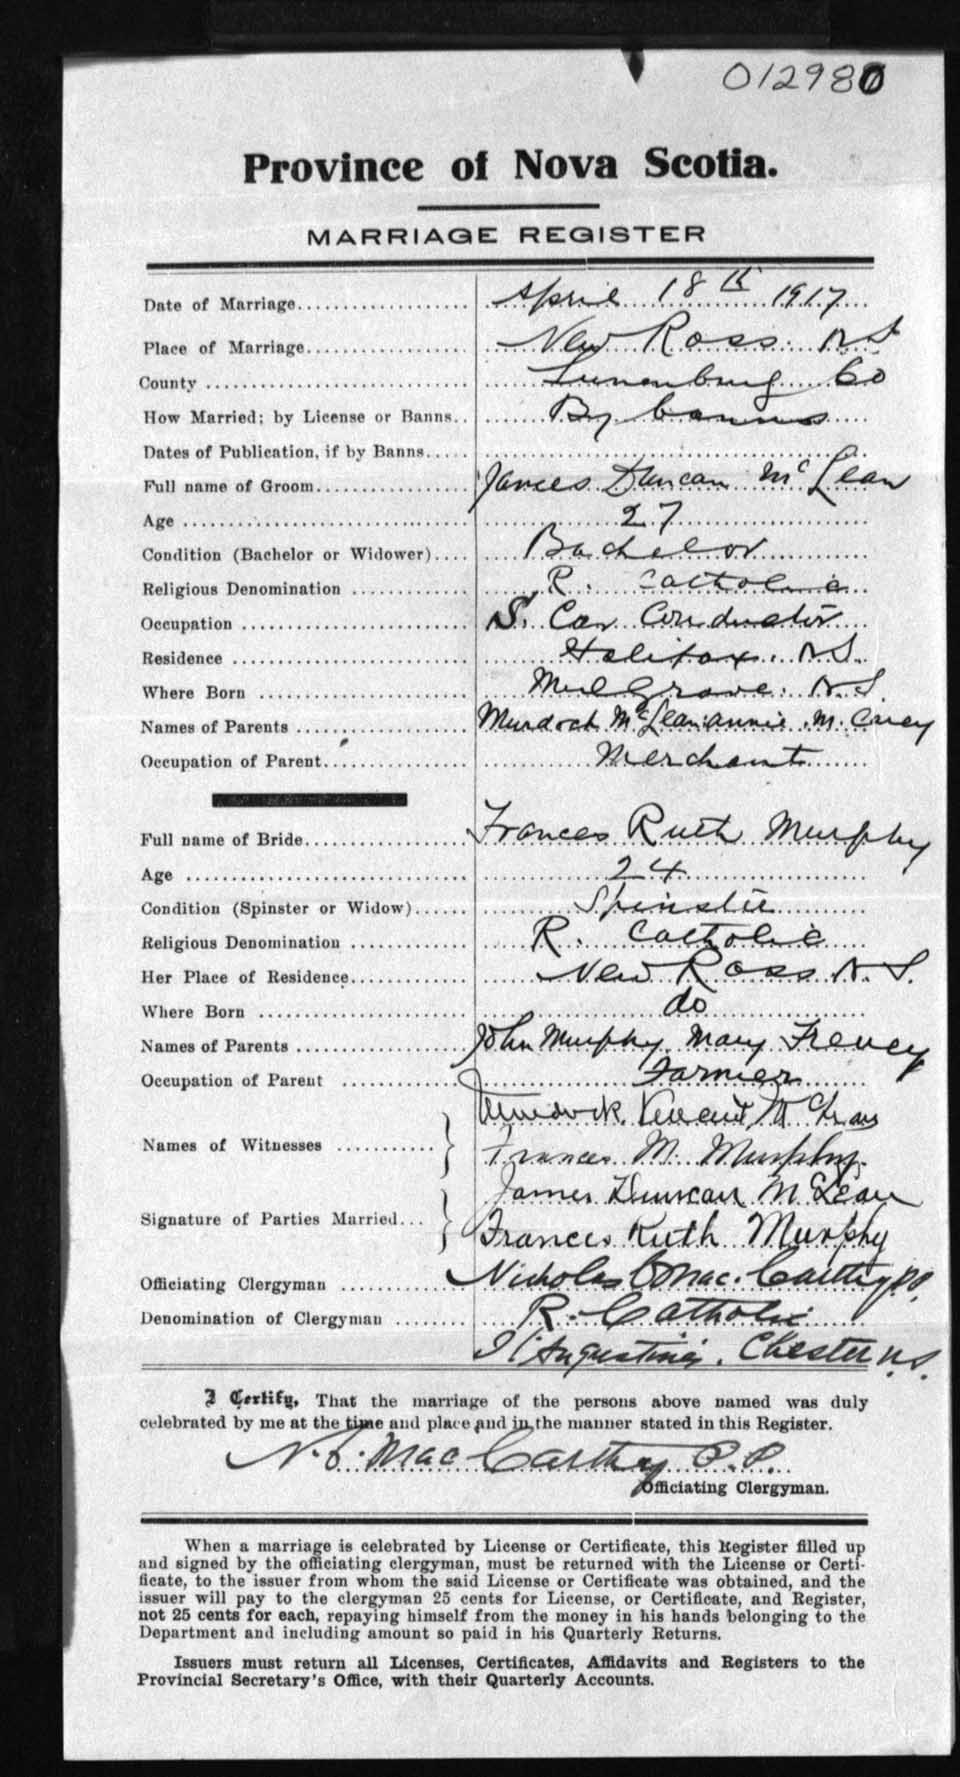 012980
Province of Nova Scotia.
MARRIAGE REGISTER
Date of Marriage April 18th 1917
Place of Marriage New Ross. N S
County Lunenburg Co
How Married; by License or Banns By banns
Dates of Publication, if by Banns
Full name of Groom James Duncan McLean
Age 27
Condition (Bachelor or Widower) Bachelor
Religious Denomination R. Catholic
Occupation S. Car Conductor
Residence Halifax. N.S.
Where Born Mulgrave. N.S.
Names of Parents Murdoch McLean annie M.
Occupation of Parent Merchant
Full name of Bride Frances Ruth Murphy
Age 24
Condition (Spinster or Widow) Spinster
Religious Denomination R. Catholic
Her Place of Residence New Ross N.S.
Where Born do
Names of Parents John Murphy. Mary
Occupation of Parent Farmer
Names of Witnesses Vincent McLean
Frances M. Murphy.
Signature of Parties Married James Duncan McLean
Frances Ruth Murphy
Officiating Clergyman Nicholas MacCarthy P.P.
Denomination of Clergyman R. Catholic
St Augustine's. Chester N.S.
I Certify, That the marriage of the persons above named was duly
celebrated by me at the time and place and in the manner stated in this Register.
MacCarthy P.P.
Officiating Clergyman.
When a marriage is celebrated by License or Certificate, this Register filled up
and signed by the officiating clergyman, must be returned with the License or Certi-
ficate, to the issuer from whom the said License or Certificate was obtained, and the
issuer will pay to the clergyman 25 cents for License, or Certificate, and Register,
not 25 cents for each, repaying himself from the money in his hands belonging to the
Department and including amount so paid in his Quarterly Returns.
Issuers must return all Licenses, Certificates, Affidavits and Registers to the
Provincial Secretary's Office, with their Quarterly Accounts.